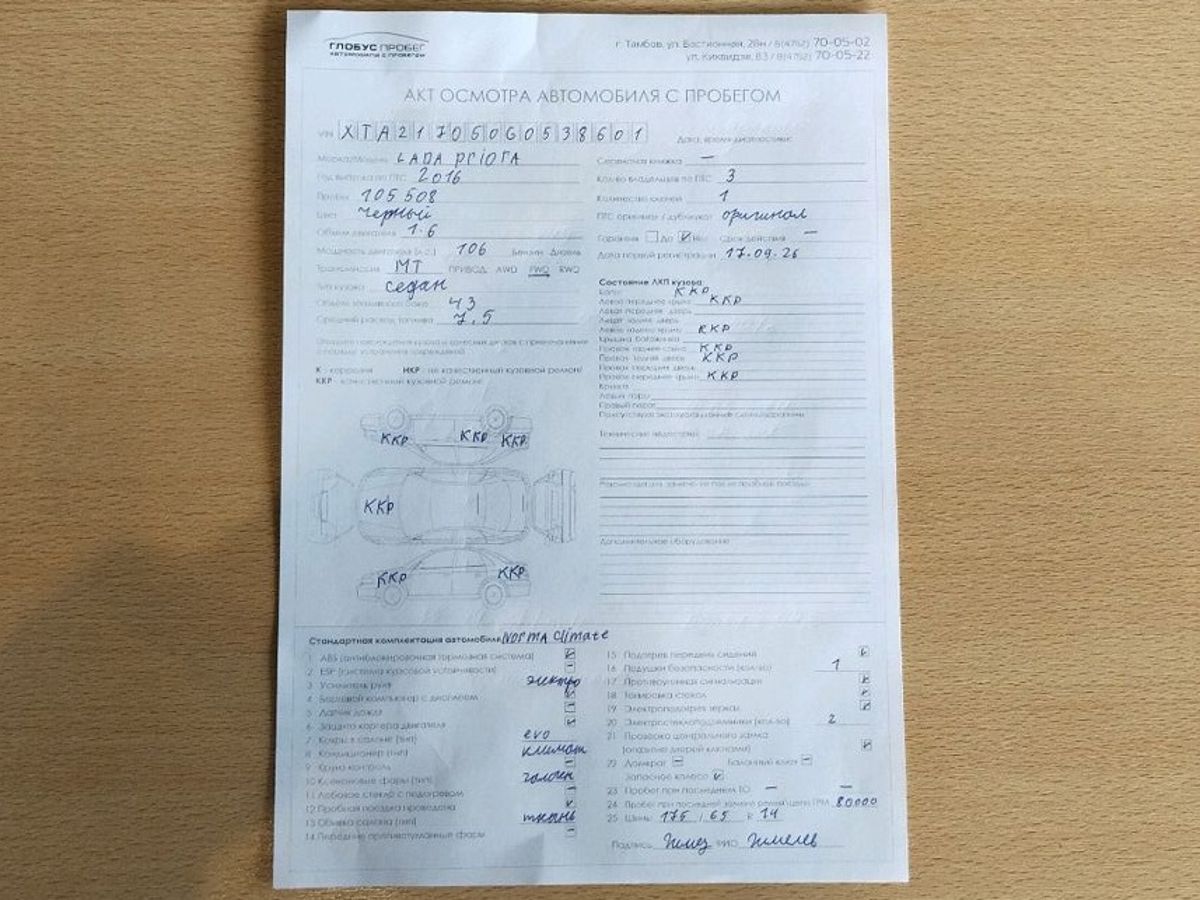 ГЛОБУС ПРОБЕГ
АВТОМОБИЛИ С ПРОБЕГОМ
г. Тамбов, ул. Бастионная, 28н / 8(4752) 70-05-02
ул. Киквидзе, 83 / 8(4752) 70-05-22
АКТ ОСМОТРА АВТОМОБИЛЯ С ПРОБЕГОМ
VIN XTA217050G0538601
Дата, время диагностики:
Марка/Модель LADA PRIORA
Год выпуска по ПТС 2016
Пробег 105 508
Цвет черный
Объем двигателя 1.6
Мощность двигателя (л.с.) 106 Бензин Дизель
Трансмиссия МТ ПРИВОД: AWD FWD RWD
Тип кузова седан
Объем топливного бака 43
Средний расход топлива 7,5
К - коррозия НКР - не качественный кузовной ремонт
ККР - качественный кузовной ремонт
ККР ККР ККР
ККР
ККР ККР
Сервисная книжка —
Кол-во владельцев по ПТС 3
Количество ключей 1
ПТС оригинал / дубликат оригинал
Гарантия Да Нет Срок действия —
Дата первой регистрации 17.09.
Состояние ЛКП кузова
Капот ККР
Левое переднее крыло ККР
Левая передняя дверь
Левая задняя дверь
Левое заднее крыло ККР
Крышка багажника
Правое заднее крыло ККР
Правая задняя дверь ККР
Правая передняя дверь
Правое переднее крыло ККР
Крыша
Левый порог
Правый порог
Технические недостатки
Дополнительное оборудование
Стандартная комплектация автомобиля NORMA Climate
1 ABS (антиблокировочная тормозная система)
2 ESP (система курсовой устойчивости)
3 Усилитель руля электро
4 Бортовой компьютер с дисплеем
5 Датчик дождя
6 Защита картера двигателя
7 Ковры в салоне (тип) evo
8 Кондиционер (тип) климат
9 Круиз контроль
10 Ксеноновые фары (тип) галоген
11 Лобовое стекло с подогревом
12 Пробная поездка проводилась
13 Обивка салона (тип) ткань
14 Передние противотуманные фары
15 Подогрев передних сидений
16 Подушки безопасности (кол-во) 1
17 Противоугонная сигнализация
18 Тонировка стекол
19 Электроподогрев зеркал
20 Электростеклоподъемники (кол-во) 2
21 Проверка центрального замка
(открытие дверей ключами)
22 Домкрат — Балонный ключ —
Запасное колесо
23 Пробег при последнем ТО — —
24 Пробег при последней замене ремня/цепи ГРМ 80000
25 Шины 175 / 65 R 14
Подпись ФИО